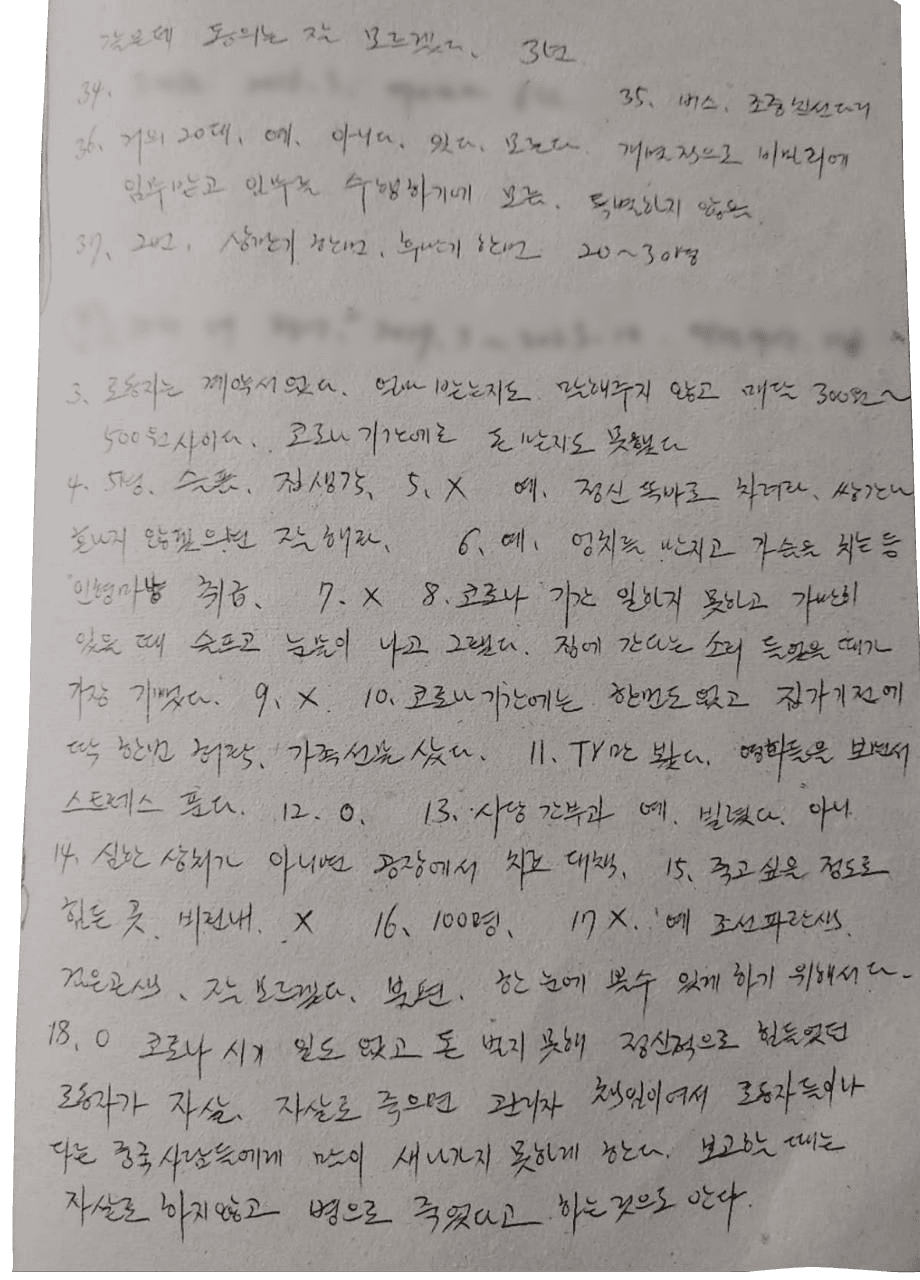 같은데 동의는 잘 모르겠다. 3년
34. 35. 버스, 조중친선다리
36. 거의 20대, 예, 아니다, 있다, 모른다. 개별적으로 비밀리에
임무받고 임무를 수행하기에 모름. 특별하지 않음.
37. 2번, 상반기 한번, 하반기 한번 20~30명
3. 로동자는 계약서 없다. 얼마 받는지도 말해주지 않고 매달 300원~
500원사이다. 코로나 기간에로 돈 받지도 못했다
4. 5명, 슬픔, 집생각, 5. X 예. 정신 똑바로 차려라, 쌍간나
혼나지 않겠으면 잘해라, 6. 예, 엉치를 만지고 가슴을 치는 등
인형마냥 취급, 7. X 8. 코로나 기간 일하지 못하고 가만히
있을 때 슬프고 눈물이 나고 그랬다. 집에 간다는 소리 들었을 때가
가장 기뻤다. 9. X 10. 코로나기간에는 한번도 없고 집가기전에
딱 한번 허락, 가족선물 샀다. 11. TV만 봤다. 영화들을 보면서
스트레스 푼다. 12. O. 13. 사당 간부과 예, 빌렸다. 아니
14. 심한 상처가 아니면 공장에서 치료 대책, 15. 죽고싶을 정도로
힘든 곳 비린내. X 16. 100명, 17 X. 예 조선파란색
검은곤색, 잘 모르겠다. 북편, 한 눈에 볼수 있게 하기 위해서다.
18. O 코로나 시기 일도 없고 돈 벌지 못해 정신적으로 힘들었던
로동자가 자살, 자살로 죽으면 관리자 책임이여서 로동자들이나
다른 중국사람들에게 말이 새나가지 못하게 한다. 보고하는 때는
자살로 하지않고 병으로 죽었다고 하는것으로 안다.